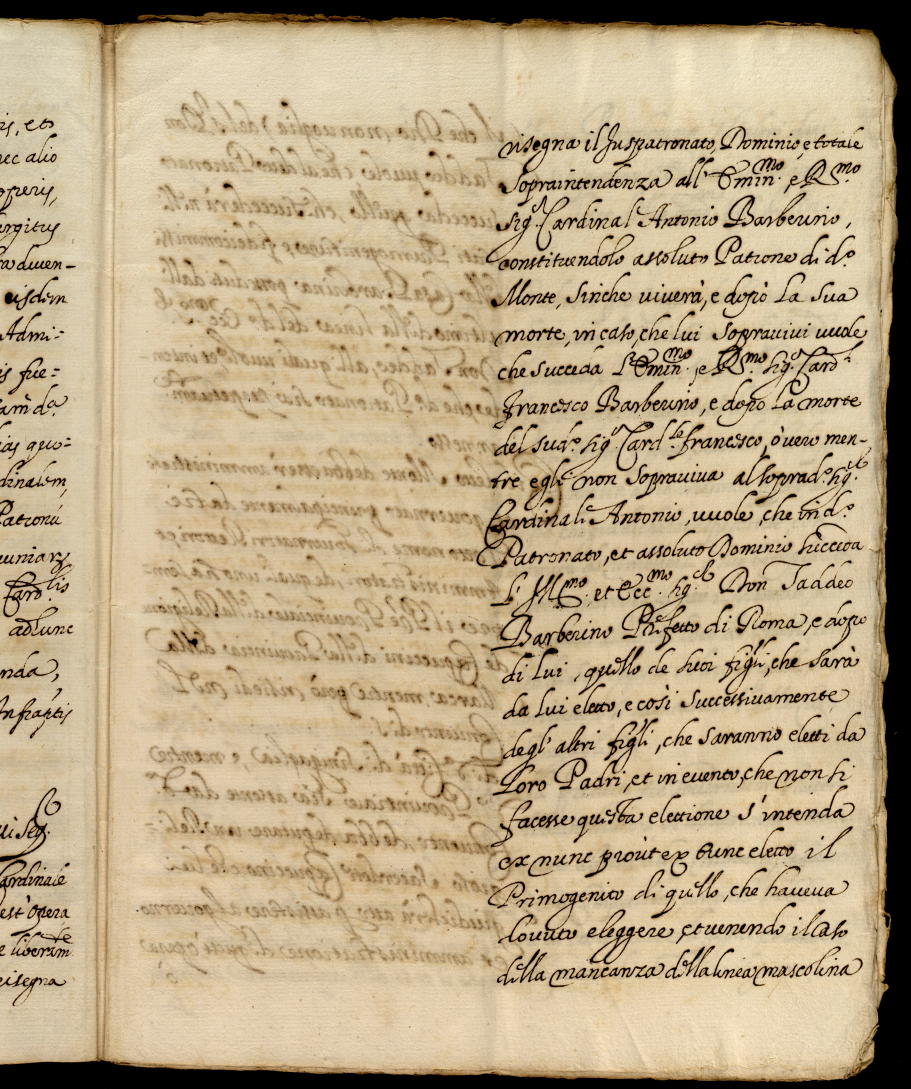 is, et
nec alio
operis,
urgitus
ra dicen-
eisdem
Admi:
is fue=
am da
ias quo=
dinalem,
Patronũ
uniarȝ
Card.lis
adhunc
nda,
Infraptis
ui Sig.
Cardinale
est' opera
e liberam.te
risegna
risegna il Juspatronato, Dominio, e totale
Sopraintendenza all' Emin.mo e R.mo
Sig.r Cardinal' Antonio Barberino,
constituendolo assoluto Patrone di d.o
Monte, Sinche viverà, e dopò La Sua
morte, in caso, che lui Sopravivi vuole
che succeda L'Emin.mo, e R.mo Sig.r Card.l
Francesco Barberino, e dopo La morte
del sud.o Sig.r Card.le francesco, ò vero men-
tre egli non Sopraviva al soprad.o Sig.r
Cardinal' Antonio, vuole, che in d.o
Patronato, et assoluto Dominio Succeda
L' Ill.mo, et Ecc.mo Sig.r Don Taddeo
Barberino Prefetto di Roma, e dopo
di Lui, quello de suoi figli, che sarà
da Lui eletto, e così Successivamente
degl' altri figli, che saranno eletti da
Loro Padri, et in evento, che non si
facesse questa elettione s'intenda
ex nunc prout ex tunc eletto il
Primogenito di quello, che haveva
dovuto eleggere, et venendo il caso
della mancanza della linea mascolina